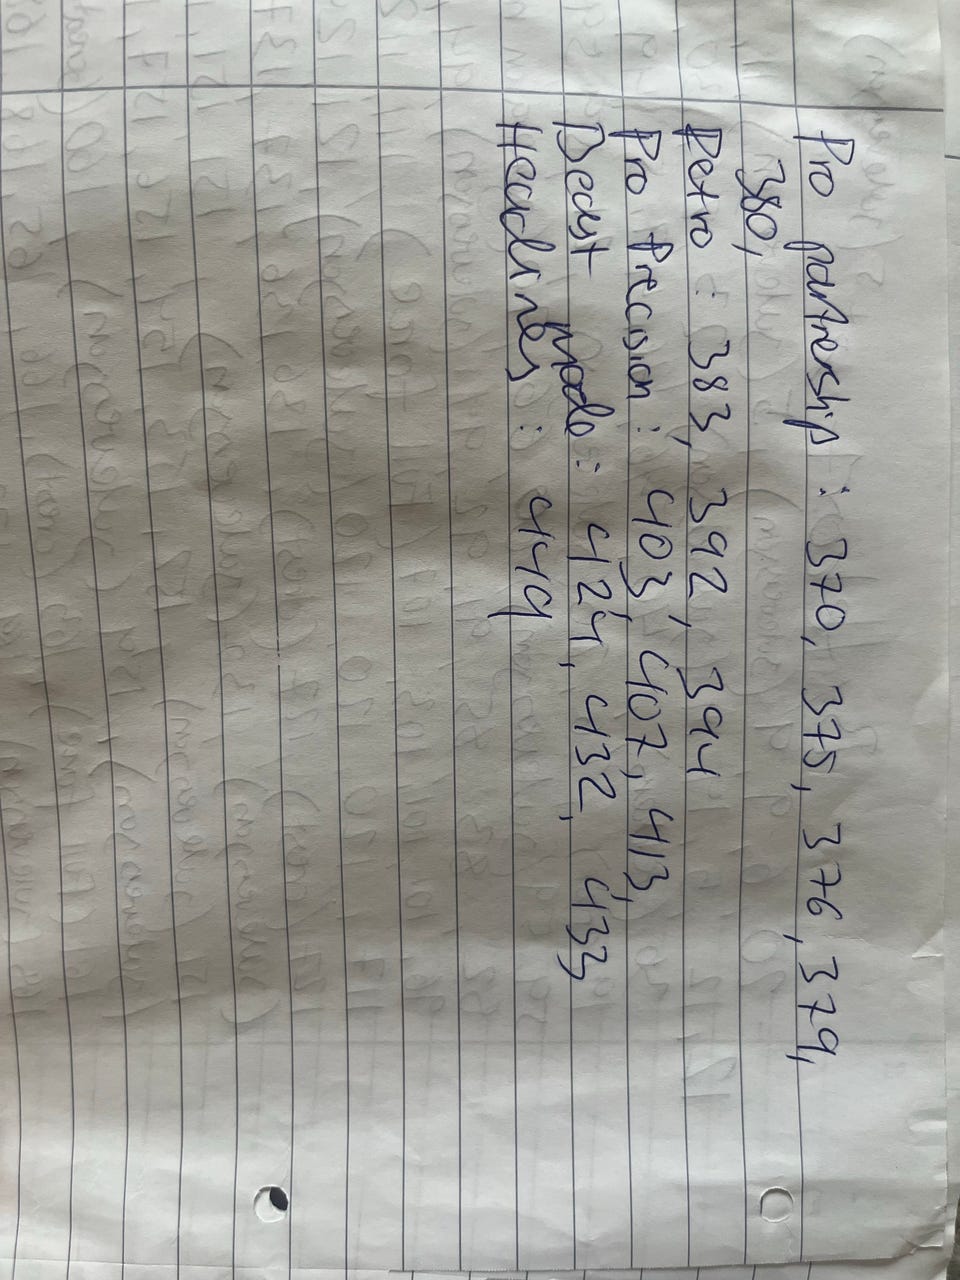 Pro partnership : 370, 375, 376, 379,
380,
Retro : 383, 392, 394
Pro Precision : 403, 407, 413,
Beast mode : 424, 432, 433
Headlines : 449